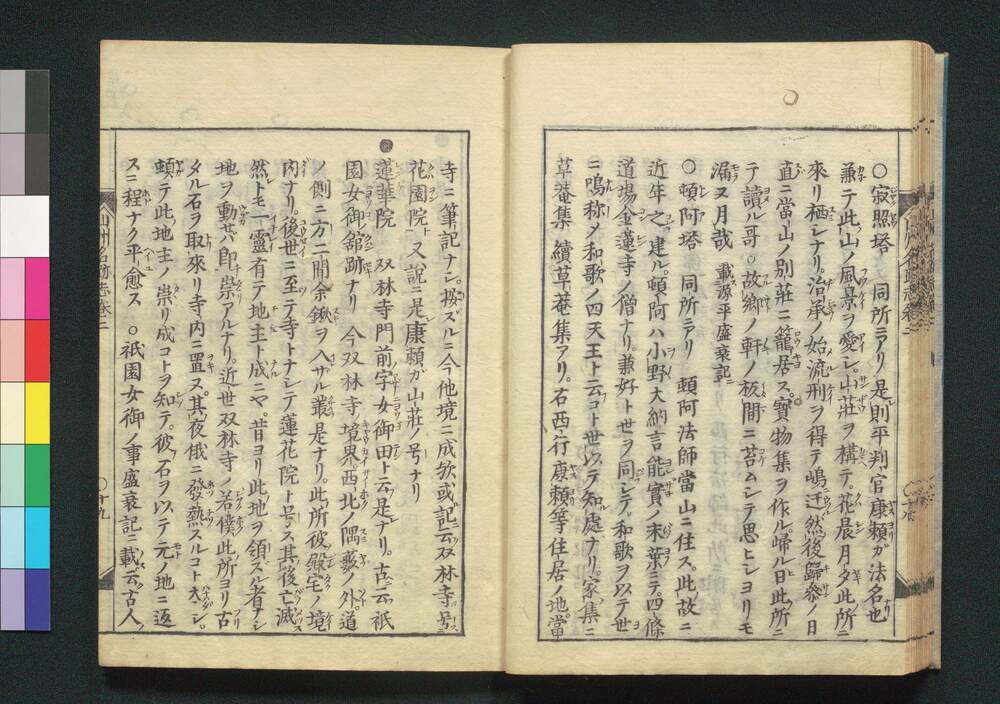 ○寂照塔 同所ニアリ是則平判官康頼ガ法名也
兼テ此山ノ風景ヲ愛シ山荘ヲ構テ花晨月夕此所ニ
來リ栖シナリ治承ノ始流刑ヲ得テ嶋迁然後歸参ノ日
直ニ當山ノ別荘ニ籠居ス寶物集ヲ作ル帰ル日此所ニ
テ讀ル哥○故郷ノ軒ノ板間ニ苔ムシテ思ヒシヨリモ
漏ヌ月哉 載源平盛衰記ニ
○頓阿塔 同所ニアリ 頓阿法師當山ニ住ス此故ニ
近年之ヲ建ル頓阿ハ小野大納言能實ノ末葉ニテ四條
道場金蓮寺ノ僧ナリ兼好ト世ヲ同シテ和歌ヲ以テ世
ニ鳴称メ和歌ノ四天王ト云コト世以テ知處ナリ家集ニ
草菴集續草菴集アリ右西行康頼等住居ノ地當
寺ニ筆記ナシ按ズルニ今他境ニ成欤或記云双林寺号
花園院ト又説ニ是康頼ガ山荘ノ号ナリ
蓮華院 双林寺門前字女御田ト云是ナリ古云祇
園女御舘跡ナリ 今双林寺境界西北ノ隅藪ノ外道
ノ側ニ方二間余鍬ヲ入ザル叢是ナリ此所彼殿宅ノ境
内ナリ後世ニ至テ寺トナシテ蓮花院ト号ス其後亡滅
然トモ一靈有テ地主ト成ニヤ昔ヨリ此地ヲ領スル者ナシ
地ヲ動セバ即崇アルナリ近世双林寺ノ若僕此所ヨリ古
タル石ヲ取來リ寺内ニ置ス其夜俄ニ發熱スルコト太シ
頓テ此地主ノ崇リ成コトヲ知テ彼石ヲ以テ元ノ地ニ返
スニ程ナク平愈ス ○祇園女御ノ事盛衰記ニ載云古人
山州名跡志巻二
○十九